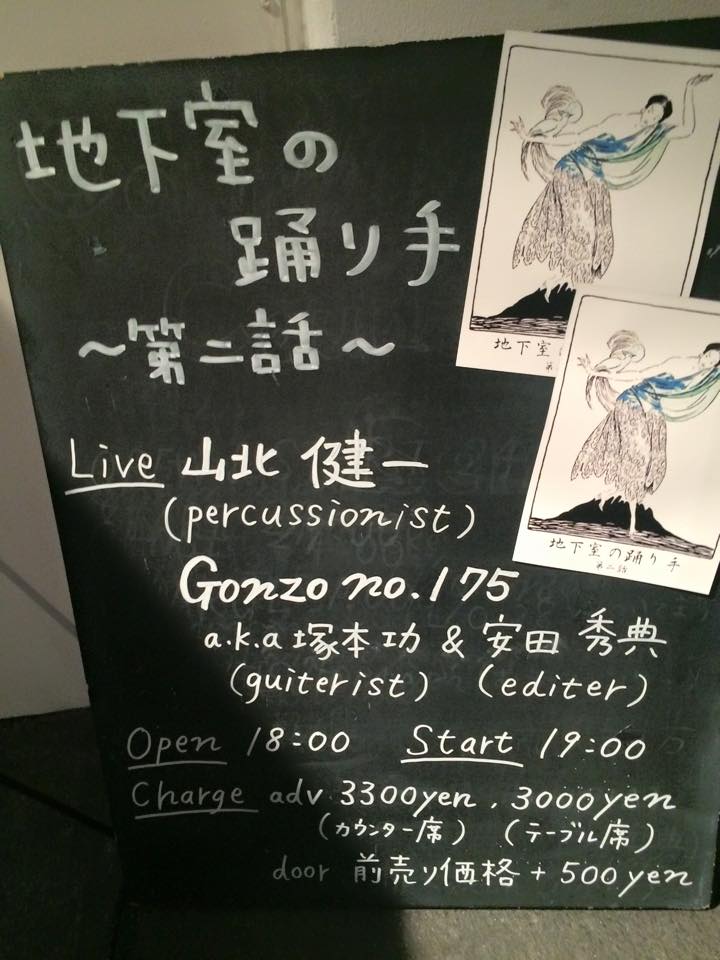 地下室の
踊り手
～第二話～
Live 山北 健一
(percussionist)
Gonzo no.175
a.k.a 塚本 功 & 安田 秀典
(guiterist) (editer)
Open 18:00 Start 19:00
Charge adv 3300yen. 3000yen
(カウンター席) (テーブル席)
door 前売り価格 + 500yen
地下室
第
地下室の踊り手
第二話